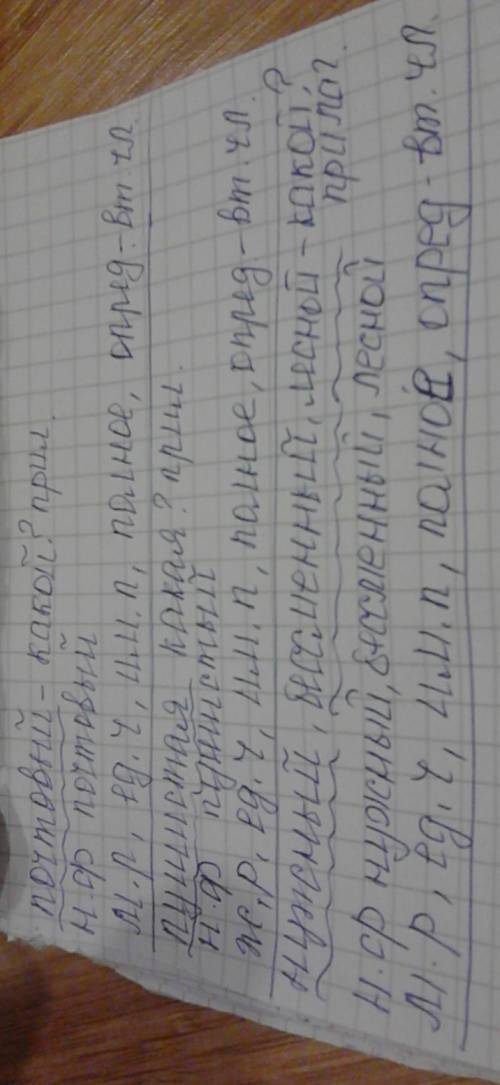 почтовый - какой? прил.
Н.ф почтовый
М.р, ед.ч, И.м.п, полное, опред-вт.чл.
пушистая какая? прил.
Н.ф пушистый
ж.р, ед.ч, И.м.п, полное, опред-вт.чл.
нужный, письменный, лесной - какой?
прилог.
Н.ф нужный, письменный, лесной
М.р, ед.ч, И.м.п, полное, опред-вт.чл.